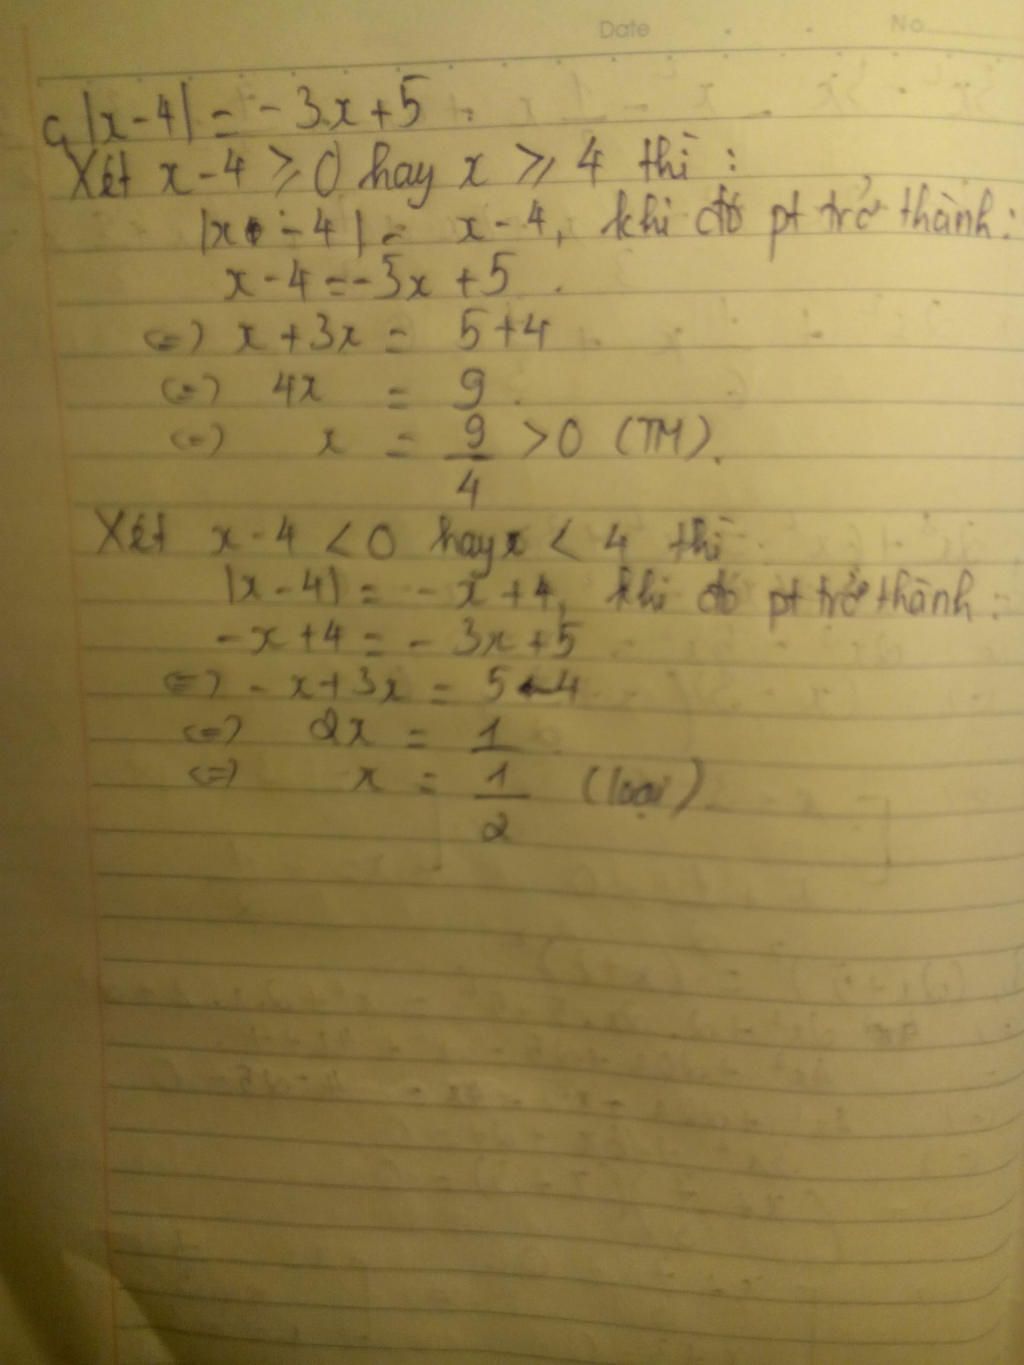 Date No
c, |x-4| = -3x+5.
Xét x-4 ⩾ 0 hay x ⩾ 4 thì:
|x-4| = x-4, khi đó pt trở thành:
x-4 = -3x+5.
<=> x+3x = 5+4
<=> 4x = 9.
<=> x = 9/4 >0 (TM).
Xét x-4 < 0 hay x < 4 thì
|x-4| = -x+4, khi đó pt trở thành:
-x+4 = -3x+5
<=> -x+3x = 5-4
<=> 2x = 1
<=> x = 1/2 (loại)